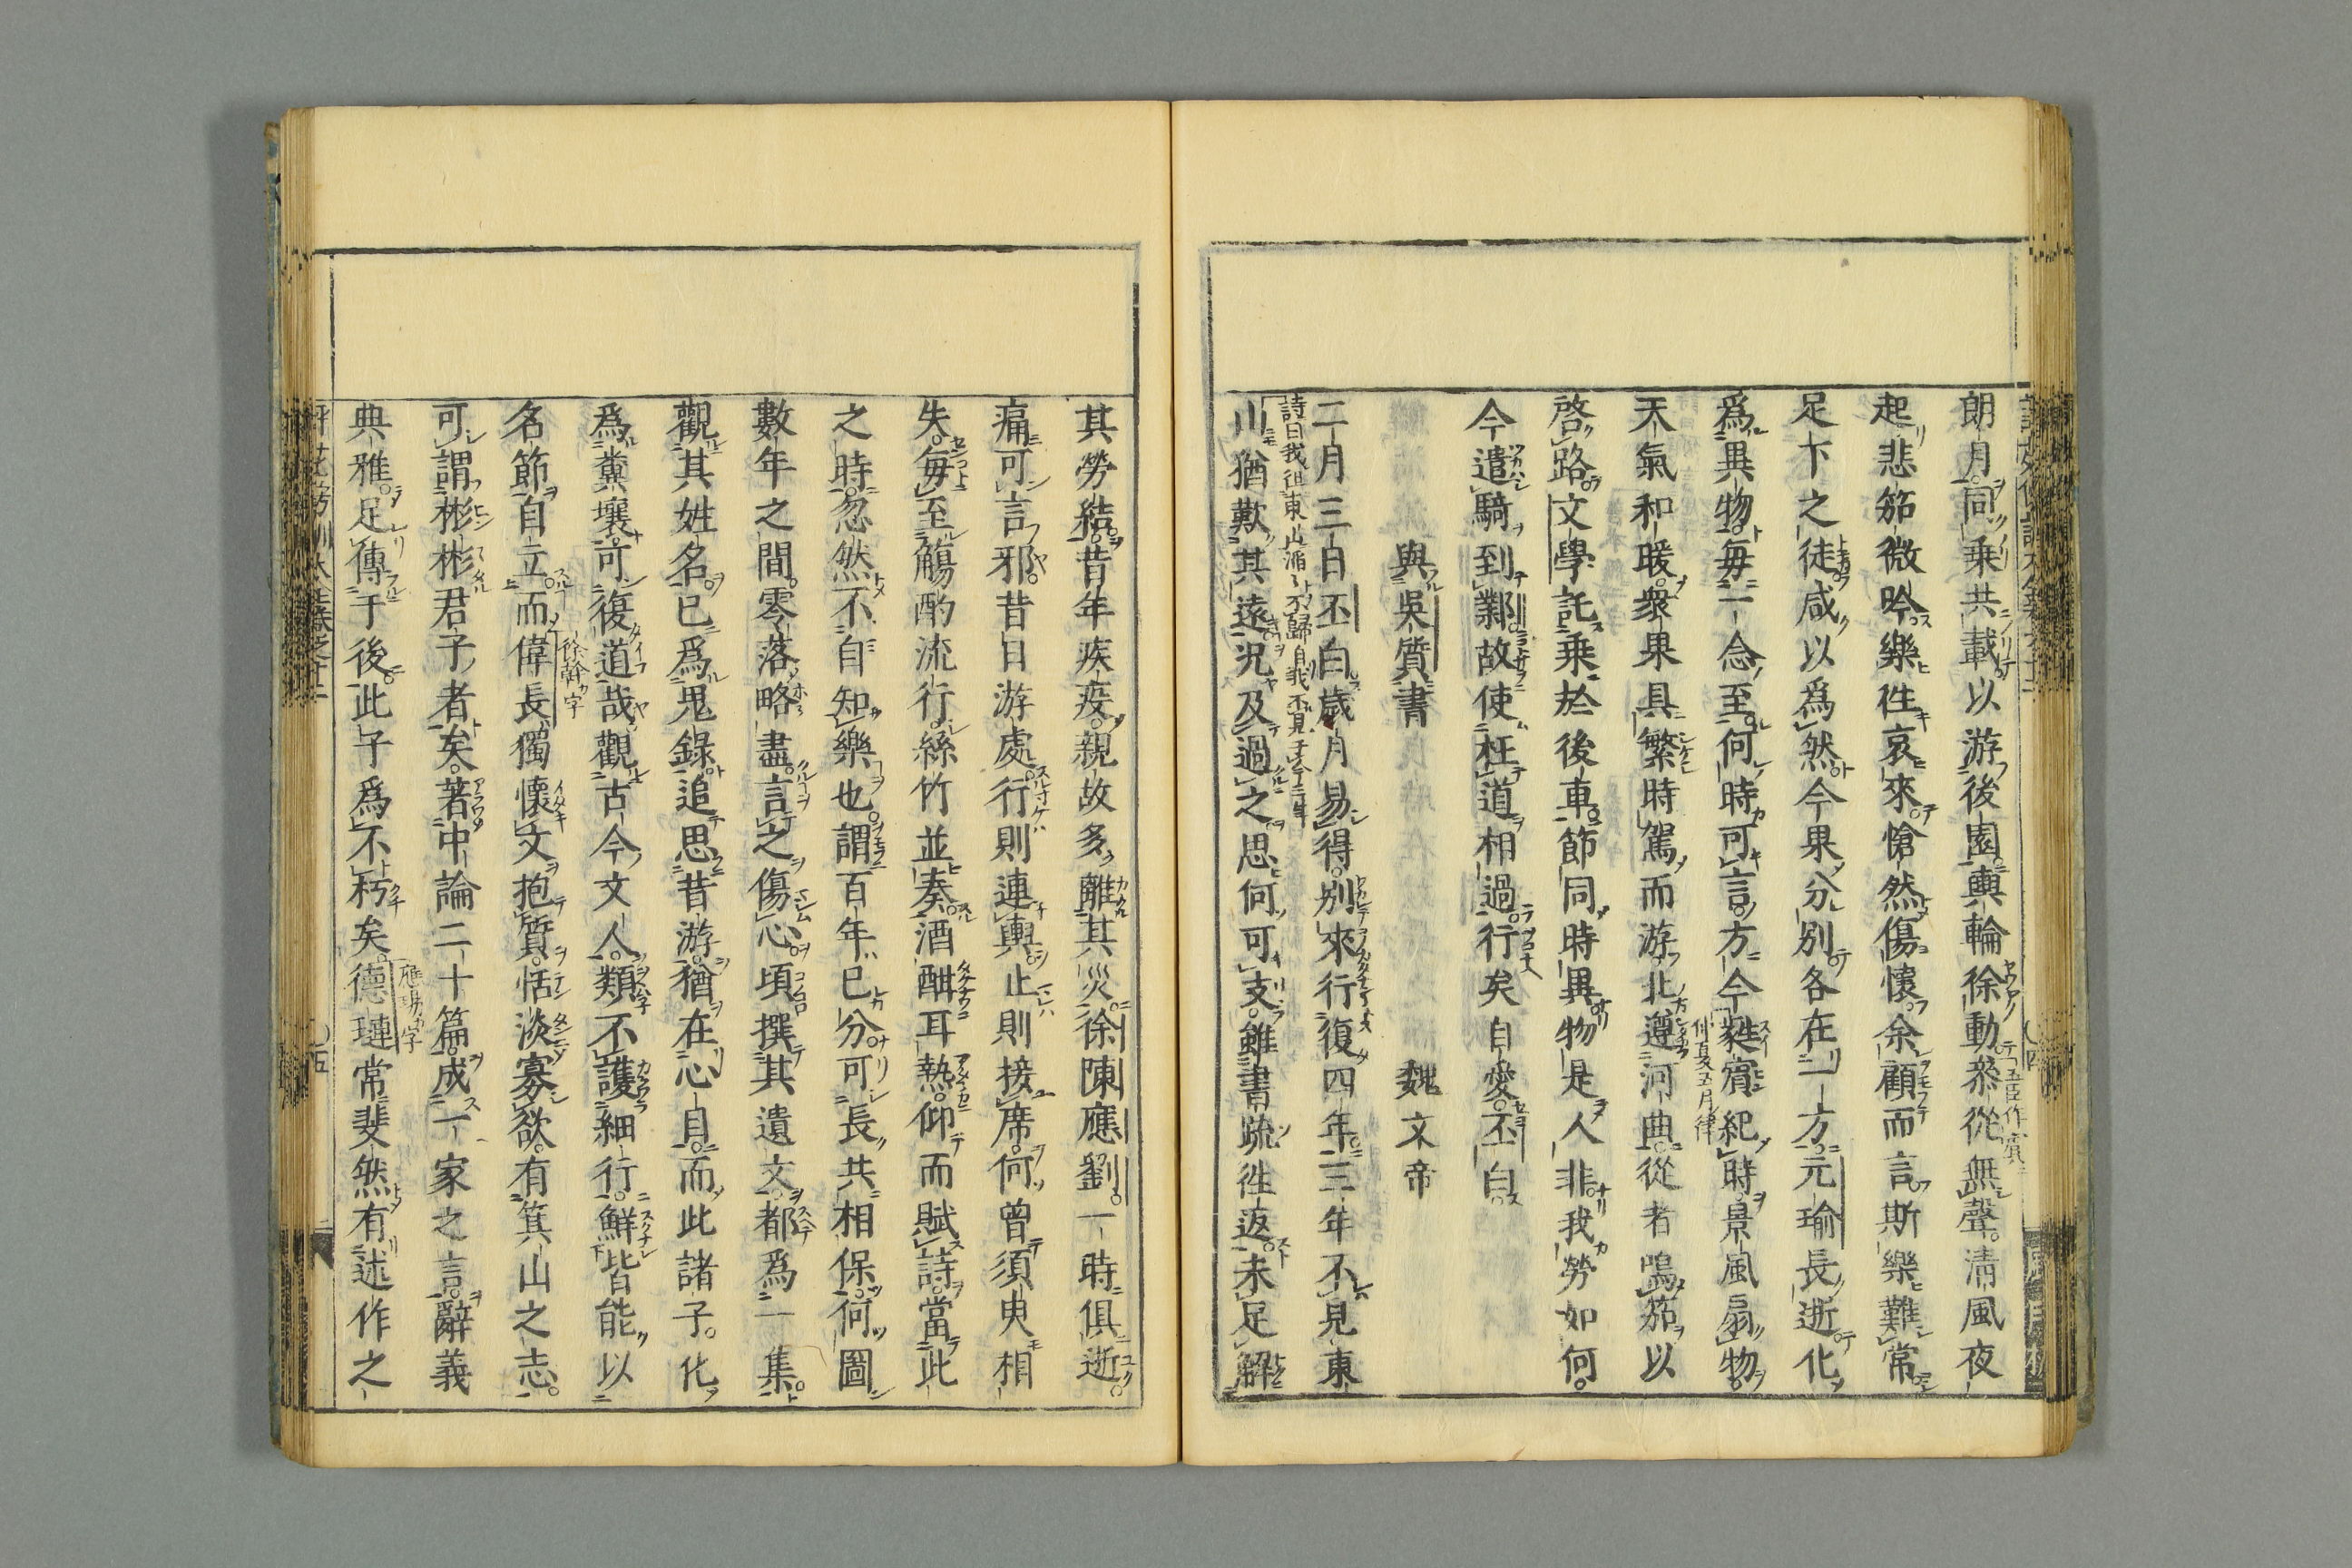 朗月同乘共載以游後園輿輪徐動叅從無聲清風夜
五臣作賓
起悲笳微吟樂徃哀來愴然傷懷余顧而言斯樂難常
足下之徒咸以爲然今果分別各在一方元瑜長逝化
爲異物毎一念至何時可言方今蕤賓紀時景風扇物
仲夏五月律
天氣和暖衆果具繁時駕而游北遵河曲從者鳴笳以
啓路文學託乘於後車節同時異物是人非我勞如何
今遣騎到鄴故使枉道相過行矣自愛丕白
與吳質書　魏文帝
二月三日丕白歲月易得別來行復四年三年不見東
詩曰我徂東山滔々不歸自我不見于今三年
山猶歎其遠况及過之思何可支雖書疏徃返未足解
其勞結昔年疾疫親故多離其災徐陳應劉一時俱逝
痛可言邪昔日游處行則連輿止則接席何曾須臾相
失毎至觴酌流行絲竹並奏酒酣耳熱仰而賦詩當此
之時忽然不自知樂也謂百年已分可長共相保何圖
數年之間零落略盡言之傷心頃撰其遺文都爲一集
觀其姓名已爲鬼錄追思昔游猶在心目而此諸子化
爲糞壤可復道哉觀古今文人類不護細行鮮皆能以
名節自立而偉長獨懷文抱質恬淡寡欲有箕山之志
徐幹カ字
可謂彬彬君子者矣著中論二十篇成一家之言辭義
典雅足傳于後此子爲不朽矣德璉常斐然有述作之
應瑒カ字